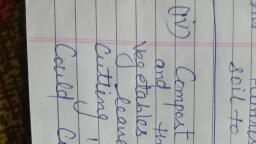 soil to
(iv) Compost
and th
vegetables
leave
cutting
Could